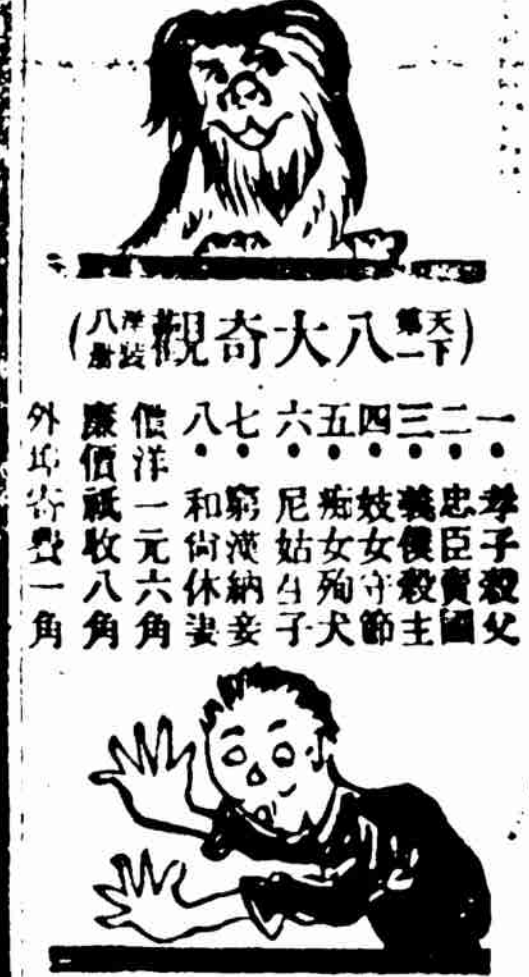 (天下第一八大奇觀洋裝八册)
一•孝子殺父
二•忠臣賣國
三•義僕殺主
四•妓女守節
五•痴女殉犬
六•尼姑生子
七•窮漢納妾
八•和尙休妻
價洋一元六角
廉價祇收八角
外埠寄費一角